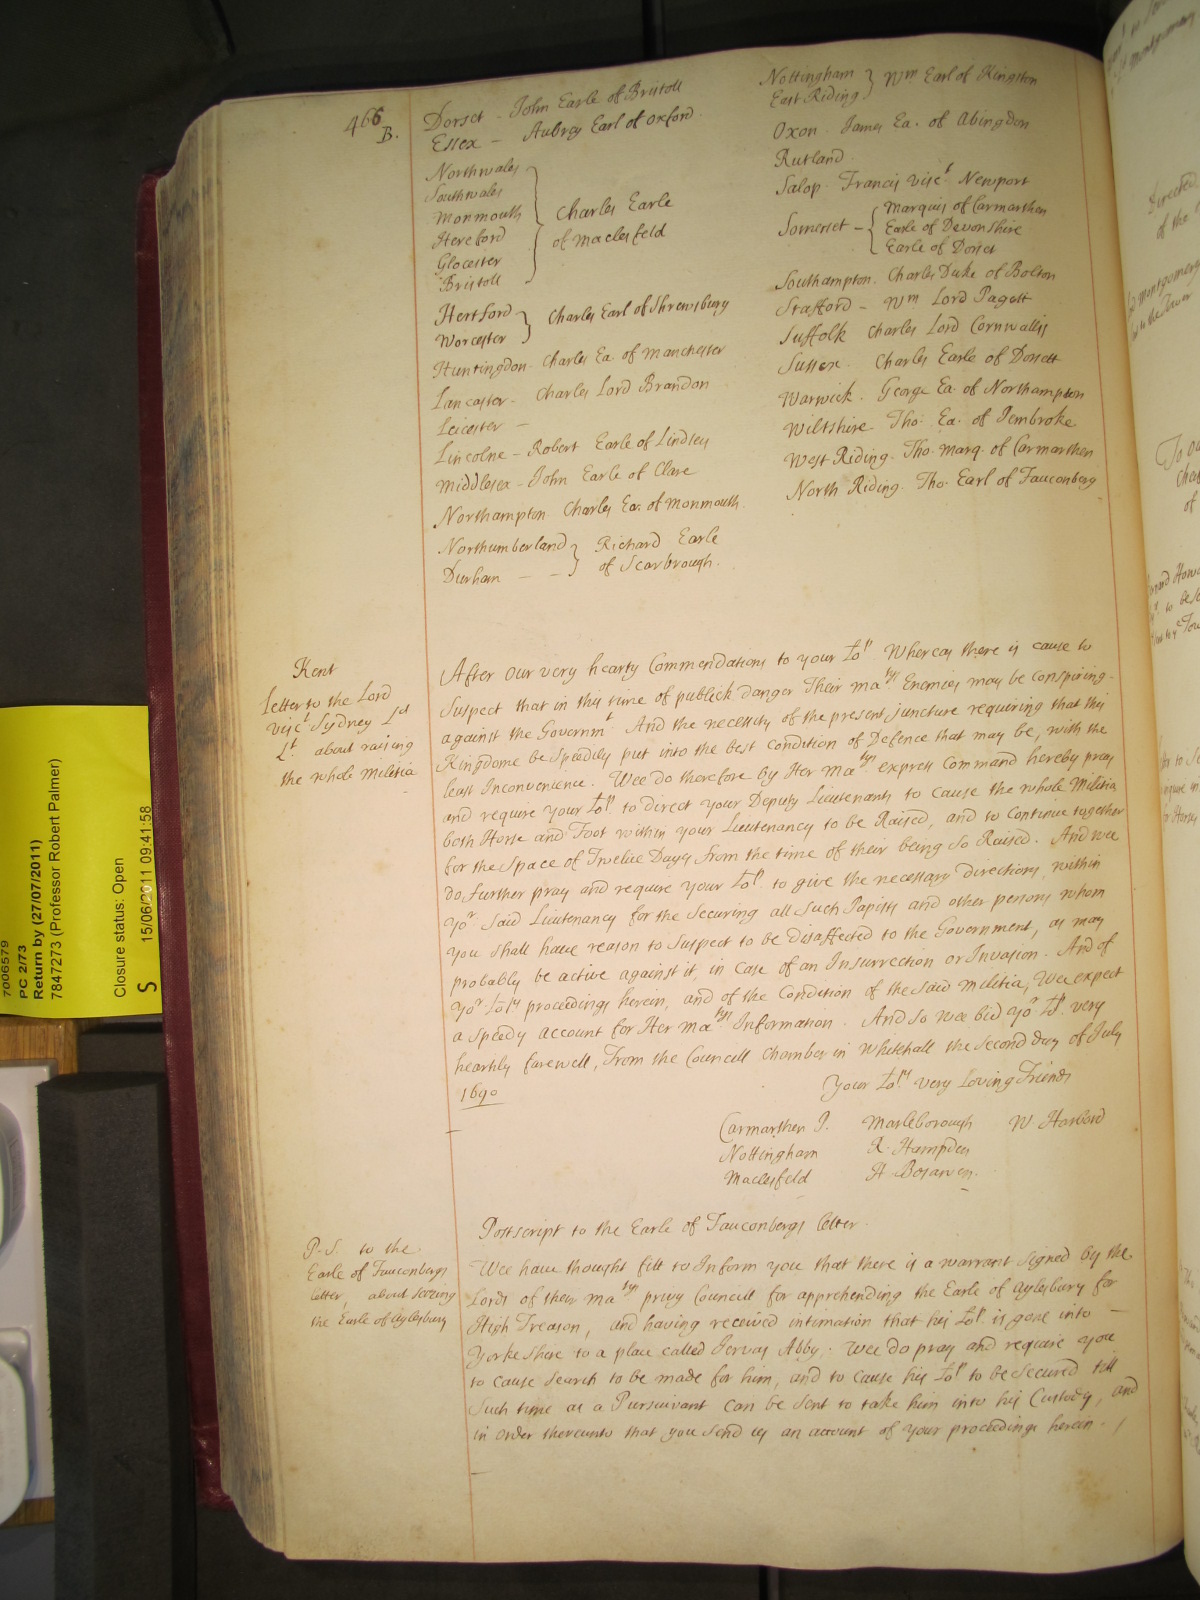 466
B.
Dorset - John Earle of Bristoll
Essex - Aubrey Earl of Oxford
Northwales
Southwales
Monmouth
Hereford
Glocester
Bristoll
Charles Earle
of Maclesfeld
Hertford
Worcester
Charles Earl of Shrewsbury
Huntingdon. Charles Ea. of Manchester
Lancaster - Charles Lord Brandon
Leicester -
Lincolne - Robert Earle of Lindsey
Middlesex - John Earle of Clare
Northampton. Charles Ea. of Monmouth.
Northumberland
Durham - -
Richard Earle
of Scarbrough.
Nottingham
East Riding
Wm Earl of Kingston
Oxon. James Ea. of Abingdon
Rutland.
Salop. Francis Visct Newport
Somerset -
Marquis of Carmarthen
Earle of Devonshire
Earle of Dorset
Southampton. Charles Duke of Bolton
Stafford - Wm Lord Pagett
Suffolk Charles Lord Cornwallis
Sussex. Charles Earle of Dorsett
Warwick. George Ea. of Northampton
Wiltshire Tho. Ea. of Pembroke
West Riding. Tho. Marq. of Carmarthen
North Riding. Tho. Earl of Fauconberg
Kent
Letter to the Lord
Visct Sydney Ld
Lt about raising
the whole Militia
After our very hearty Commendations to your Lopp Whereas there is cause to
Suspect that in this time of publick danger Their Matys Enemies may be conspiring
against the Governmt And the necessity of the present juncture requiring that this
Kingdome be Speedily put into the best Condition of Defence that may be, with the
least Inconvenience. Wee do therefore by Her Matys express Command hereby pray
and require your Lopp to direct your Deputy Lieutenants to cause the whole Militia
both Horse and Foot within your Lieutenancy to be Raised, and to Continue together
for the Space of Twelve Dayes from the time of their being so Raised. And wee
do further pray and require your Lopp to give the necessary directions within
Yor Said Lieutenancy for the Securing all such Papists and other persons whom
you shall have reason to suspect to be disaffected to the Government, as may
probably be active against it, in case of an Insurrection or Invasion. And of
Yor Lopps proceedings herein, and of the Condition of the said Militia, Wee expect
a speedy account for Her Matys Information. And so wee bid Yor Lopp very
heartily farewell, From the Councill Chamber in Whitehall the Second day of July
1690
Your Lopps very Loving Friends
Carmarthen P. Marleborough W Harbord
Nottingham R. Hampden
Maclesfeld H. Boscawen.
Postscript to the Earle of Fauconbergs letter.
P.S. to the
Earle of Fauconbergs
letter, about seizing
the Earle of Aylesbury
Wee have thought fitt to Inform you that there is a warrant signed by the
Lords of their Matys privy Councill for apprehending the Earle of Aylesbury for
High Treason, and having received intimation that his Lopp is gone into
Yorkeshere to a place called Jervas Abby: Wee do pray and require you
to cause search to be made for him, and to cause his Lopp to be Secured till
such time as a Pursuivant can be sent to take him into his Custody, and
in order thereunto that you send us an account of your proceedings herein.
7006579
PC 2/73
Return by (27/07/2011)
7847273 (Professor Robert Palmer)
Closure status: Open
S 15/06/2011 09:41:58